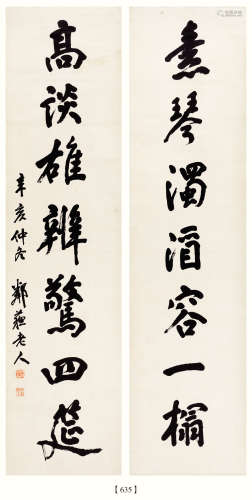 素琴濁酒容一榻
高談雄辨驚四筵
辛亥仲冬 鄰蘇老人
【635】